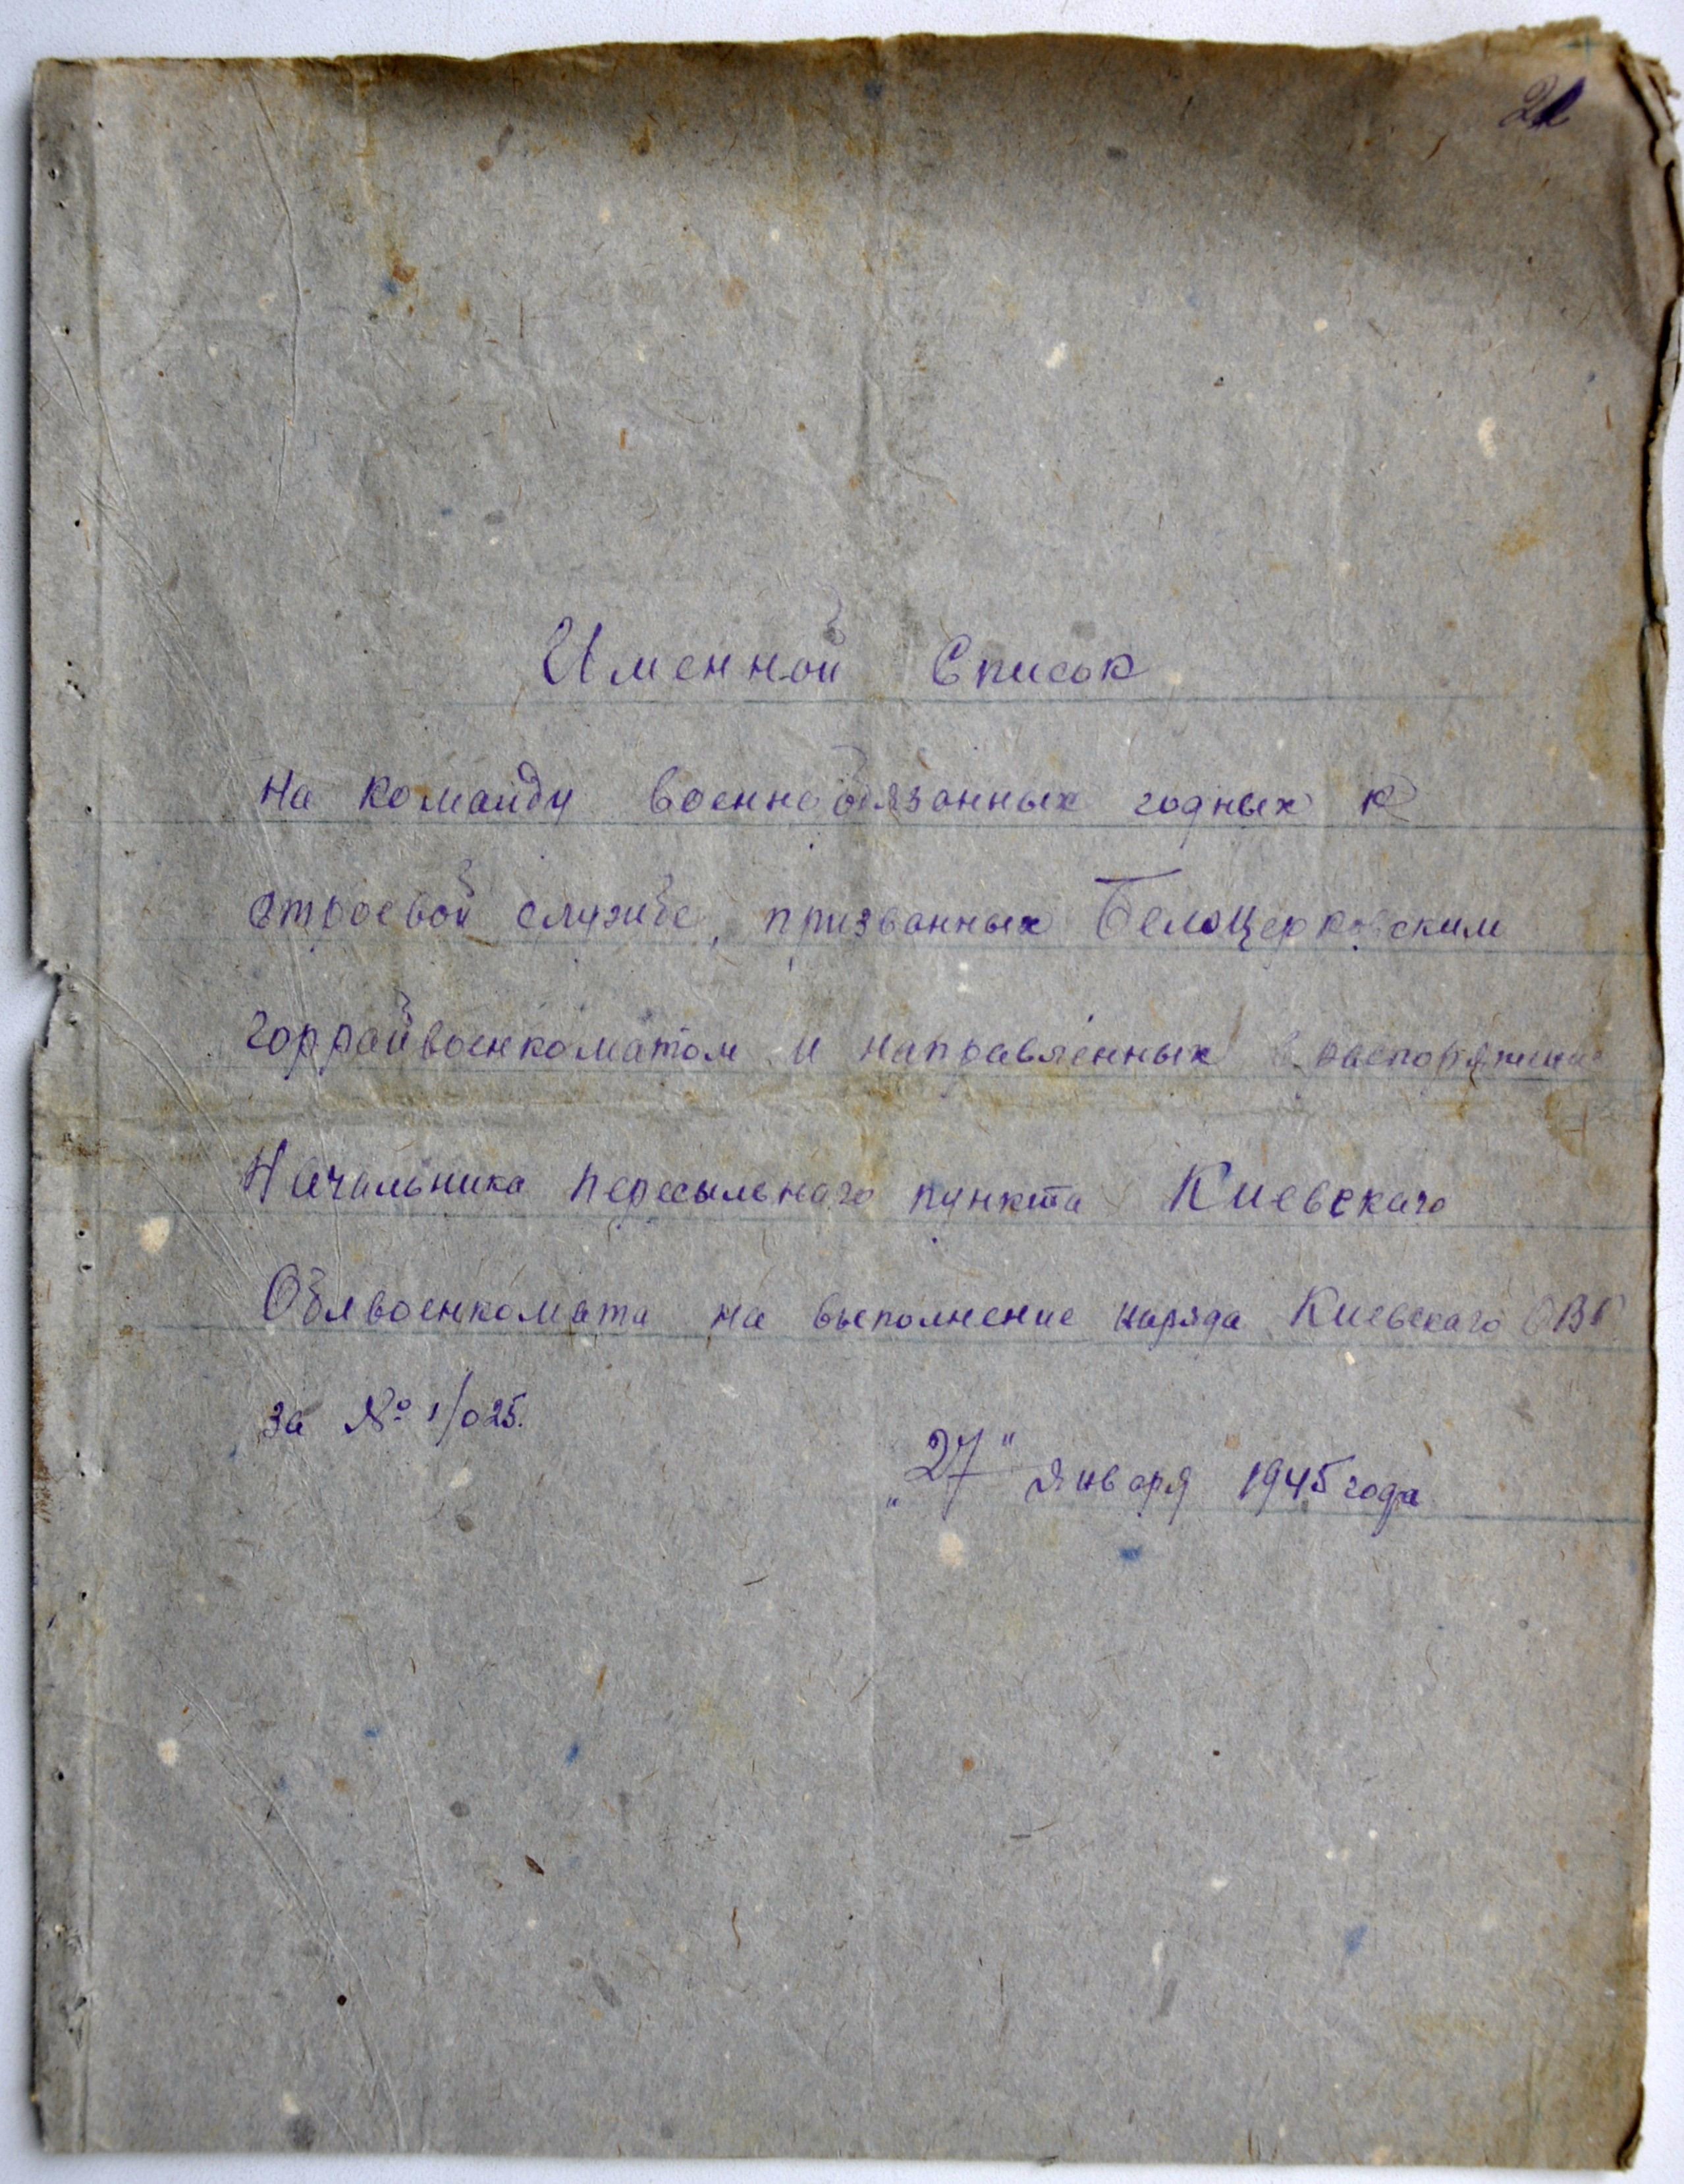 Именной Список
на команду военнообязанных годных к
строевой службе, призванных Белоцерковским
горрайвоенкоматом и направленных в распоряжение
Начальника пересыльнаго пункта Киевскаго
Облвоенкомата на выполнение наряда Киевскаго
за № 1/025.
„27" Января 1945 года